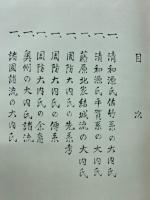 目次
一、清和源氏佐竹系の大内氏
一、清和源氏平賀系の大内氏
一、藤原北家結城流の大内氏
一、周防大内氏の先系考
一、周防大内氏の傳系
一、周防大内氏の余裔
一、奥州の大内氏諸流
一、諸国諸流の大内氏